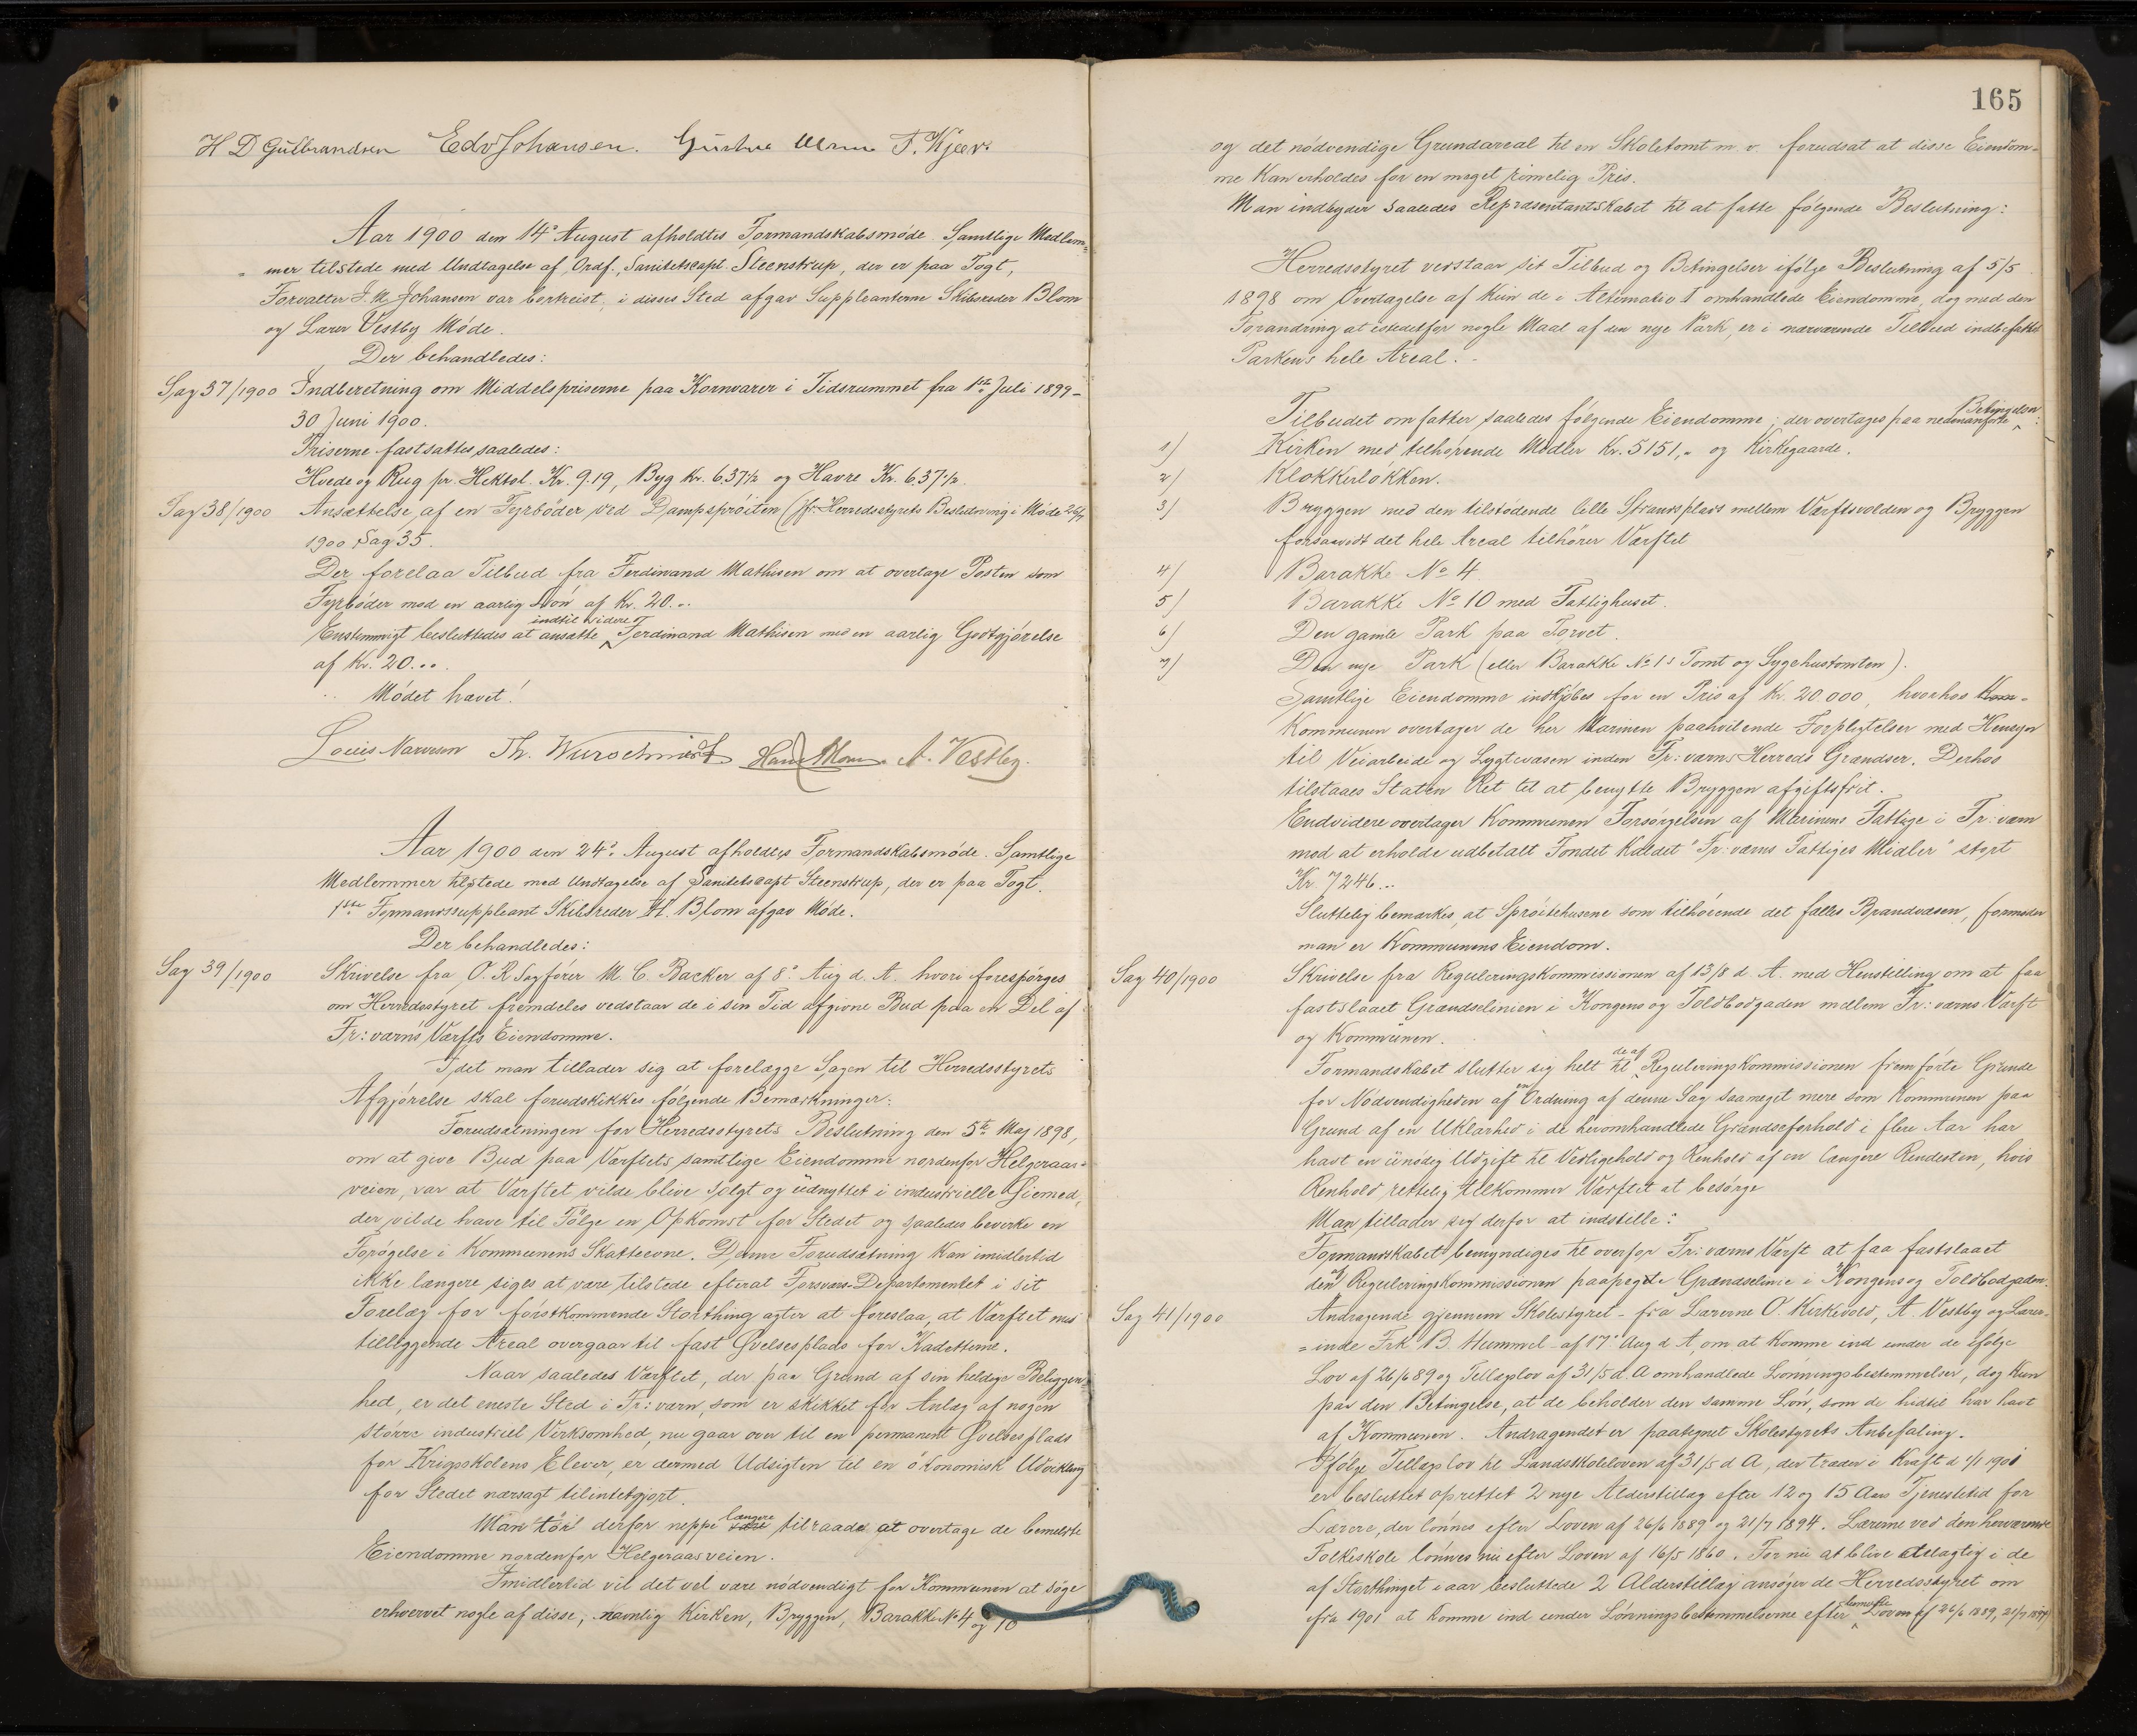 H D Gulbrandsen Edv Johansen. T. Kjær.
Aar 1900 den 14de August afholdtes Formandskabsmøde. Samtlige Medlem=
= mer tilstede med Undtagelse af Ordf., Sanitetscapt. Steenstrup, der er paa Togt,
Forvalter J. M. Johansen var bortreist, i disses Sted afgav Suppleanterne Skibsreder Blom
og Lærer Vestby Møde.
Der behandledes:
Sag 37/1900 Indberetning om Middelspriserne paa Kornvarer i Tidsrummet fra 1ste Juli 1899 -
30 Juni 1900.
Priserne fastsattes saaledes:
Hvede og Rug pr. Hektol. Kr. 9.19, Byg Kr. 6.37½ og Havre Kr. 6.37½.
Sag 38/1900 Ansættelse af en Fyrbøder ved Dampsprøiten (jfr. Herredsstyrets Beslutning i Møde 26/7
1900 Sag 35.
Der forelaa Tilbud fra Ferdinand Mathisen om at overtage Posten som
Fyrbøder mod en aarlig Løn af Kr. 20...
Enstemmigt besluttedes at ansætte indtil videre Ferdinand Mathisen med en aarlig Godtgjørelse
af Kr. 20...
Mødet hævet!
Louis Narvesen Th. Wurschmidt A. Vestby.
Aar 1900 den 24de August afholdtes Formandskabsmøde. Samtlige
Medlemmer tilstede med Undtagelse af Sanitetscapt Steenstrup, der er paa Togt.
1ste Formandssuppleant Skibsreder H. Blom afgav Møde.
Der behandledes:
Sag 39/1900 Skrivelse fra O. R Sagfører M. C. Backer af 8de Aug d. A. hvori forespørges
om Herredsstyret fremdeles vedstaar de i sin Tid afgivne Bud paa en Del af
Fr: værns Værfts Eiendomme.
Idet man tillader sig at forelægge Sagen til Herredsstyrets
Afgjørelse skal forudskikkes følgende Bemærkninger:
Forudsætningen for Herredsstyrets Beslutning den 5te Maj 1898,
om at give Bud paa Værftets samtlige Eiendomme nordenfor Helgeraas=
veien, var at Værftet vilde blive solgt og udnyttet i industrielle Øiemed,
der vilde have til Følge en Opkomst for Stedet og saaledes bevirke en
Forøgelse i Kommunens Skatteevne. Denne Forudsætning kan imidlertid
ikke længere siges at være tilstede efterat Forsvars-Departementet i sit
Forelæg for førstkommende Storthing agter at foreslaa, at Værftet med
tilliggende Areal overgaar til fast Øvelsesplads for Kadetterne.
Naar saaledes Værftet, der paa Grund af sin heldige Beliggen=
hed, er det eneste Sted i Fr: værn, som er skikket for Anlæg af nogen
større industriel Virksomhed, nu gaar over til en permanent Øvelsesplads
for Krigsskolens Elever, er dermed Udsigten til en økonomisk Udvikling
for Stedet næsagt tilintetgjort.
Man tør derfor neppe længere tilraade at overtage de bemeldte
Eiendomme nordenfor Helgeraasveien.
Imidlertid vil det vel være nødvendigt for Kommunen at søge
erhvervet nogle af disse, navnlig Kirken, Bryggen, Barakke No 4 og 10
165
og det nødvendige Grundareal til en Skoletomt m. v. forudsat at disse Eiendom=
me kan erholdes for en meget rimelig Pris.
Man indbyder saaledes Repræsentantskabet til at fatte følgende Beslutning:
Herredsstyret vedstaar sit Tilbud og Betingelser ifølge Beslutning af 5/5
1898 om Overtagelse af kun de i Alternativ I omhandlede Eiendomme, dog med den
Forandring at istedetfor nogle Maal af den nye Park, er i nærværende Tilbud indbefattet
Parkens hele Areal.
Tilbudet omfatter saaledes følgende Eiendomme, der overtages paa nedenanførte Betingelser:
1) Kirken med tilhørende Midler Kr. 5151,- og Kirkegaarde.
2) Klokkerløkken.
3) Bryggen med den tilstødende lille Strandplads mellem Værftsvolden og Bryggen
forsaavidt det hele Areal tilhører Værftet
4) Barakke No 4.
5) Barakke No 10 med Fattighuset.
6) Den gamle Park paa Torvet.
7) Den nye Park (eller Barakke No 1s Tomt og Sygehustomten).
Samtlige Eiendomme indkjøbes for en Pris af Kr. 20.000, hvorhos Kom=
Kommunen overtager de her Marinen paahvilende Forpligtelser med Hensyn
til Veiarbeide og Lygtevæsen inden Fr: værns Herreds Grændser. Derhos
tilstaaes Staten Ret til at benytte Bryggen afgiftsfrit.
Endvidere overtager Kommunen Forsørgelsen af Marinens Fattige i Fr: værn
mod at erholde udbetalt Fondet kaldet "Fr: værns Fattiges Midler" stort
Kr. 7246...
Sluttelig bemærkes, at Sprøitehusene som tilhørende det fælles Brandvæsen, formoder
man er Kommunens Eiendom.
Sag 40/1900 Skrivelse fra Reguleringskommissionen af 13/8 d. A. med Henstilling om at faa
fastslaaet Grændselinien i Kongens og Toldbodgaden mellem Fr: værns Værft
og Kommunen.
Formandskabet slutter sig helt til de af Reguleringskommissionen fremførte Grunde
for Nødvendigheden af en Ordning af denne Sag saameget mere som Kommunen paa
Grund af en Uklarhed i de heromhandlede Grændseforhold i flere Aar har
havt en unødig Udgift til Vedligehold og Renhold af en længere Rendesten, hvis
Renhold rettelig tilkommer Værftet at besørge
Man tillader sig derfor at indstille:
Formandskabet bemyndiges til overfor Fr: værns Værft at faa fastslaaet
den af Reguleringskommissionen paapegte Grændselinie i Kongens og Toldbodgaden.
Sag 41/1900 Andragende gjennem Skolestyret - fra Lærerne O. Kirkevold, A. Vestby og Lærer=
= inde Frk B. Hummel - af 17de Aug d. A, om at komme ind under de ifølge
Lov af 26/6 89 og Tillægslov af 31/5 d. A omhandlede Lønningsbestemmelser, dog kun
paa den Betingelse, at de beholder den samme Løn, som de hidtil har havt
af Kommunen. Andragendet er paategnet Skolestyrets Anbefaling.
Ifølge Tillægslov til Landsskoleloven af 31/5 d A, der træder i Kraft d 1/1 1901
er besluttet oprettet 2 nye Alderstillæg efter 12 og 15 Aars Tjenestetid for
Lærere, der lønnes efter Loven af 26/6 1889 og 21/7 1894. Lærerne ved den herværende
Folkeskole lønnes nu efter Loven af 16/5 1860. For nu at blive delagtig i de
af Storthinget i aar besluttede 2 Alderstillæg ansøger de Herredsstyret om
fra 1901 at komme ind under Lønningsbestemmelserne efter bemeldte Loven af 26/6 1889, 21/7 1894